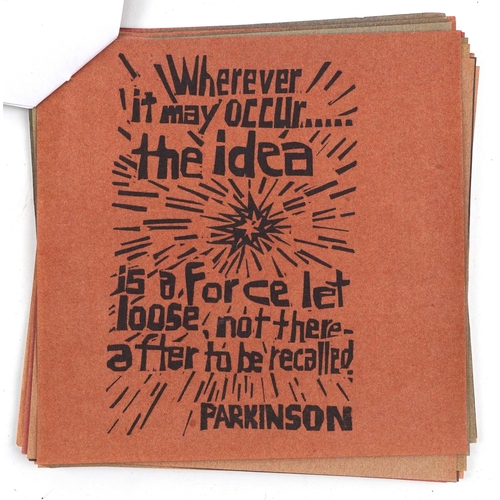 Wherever
it may occur.....
the idea
is a force let
loose, not there-
after to be recalled.
PARKINSON